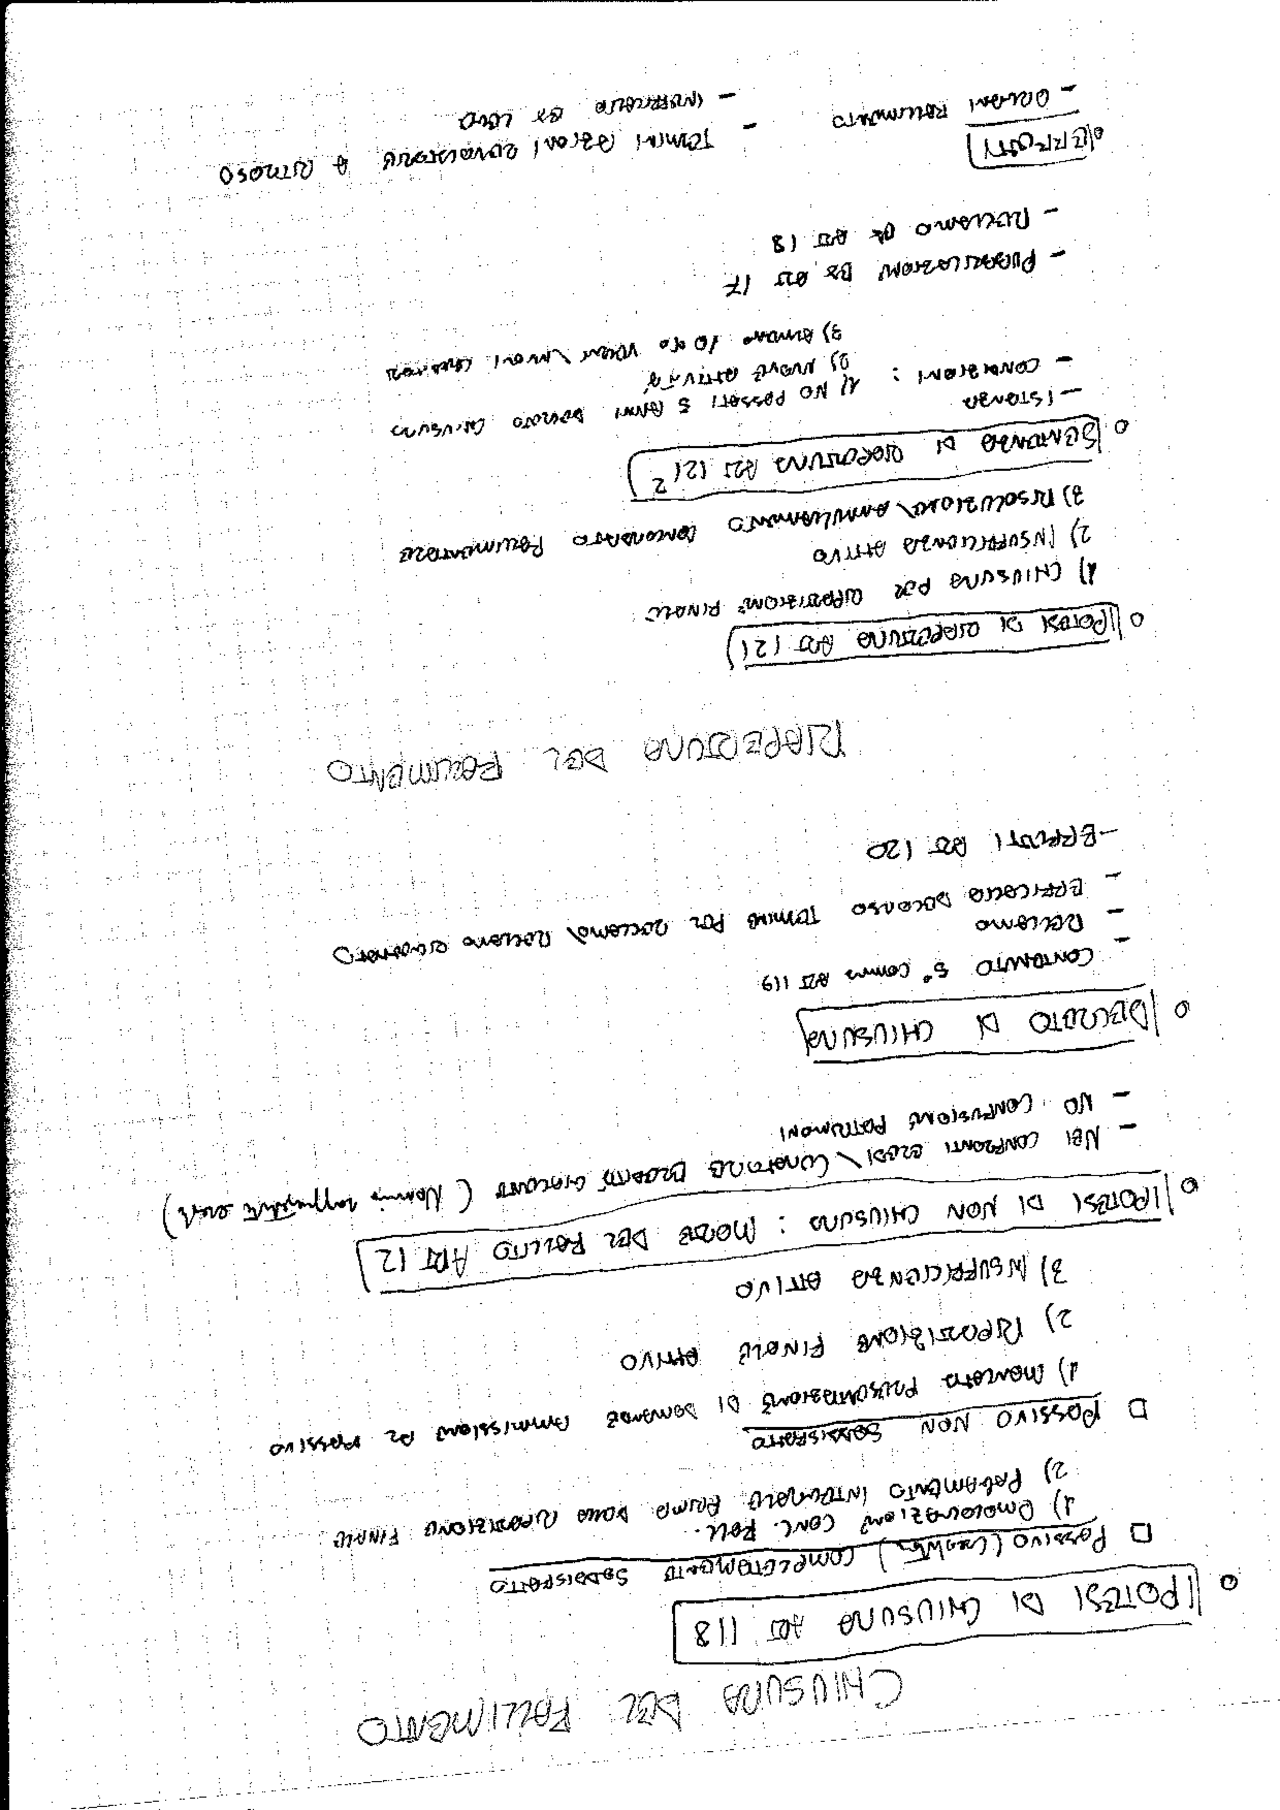 CHIUSURA DEL FALLIMENTO
○ IPOTESI DI CHIUSURA ART 118
□ PASSIVO (CREDITI) COMPLETAMENTE SODDISFATTO
1) OMOLOGAZIONE CONC. FALL.
2) PAGAMENTO INTEGRALE PRIMA DELLA RIPARTIZIONE FINALE
□ PASSIVO NON SODDISFATTO
1) MANCATA PRESENTAZIONE DI DOMANDE AMMISSIONE AL PASSIVO
2) RIPARTIZIONE FINALE ATTIVO
3) INSUFFICIENZA ATTIVO
○ IPOTESI DI NON CHIUSURA: MORTE DEL FALLITO ART 12
- NEI CONFRONTI EREDI / CURATORE EREDITÀ GIACENTE (Nomina rappresentante eredi)
- NO CONFUSIONE PATRIMONI
○ DECRETO DI CHIUSURA
- CONTENUTO 5° comma ART 119
- RECLAMO
- EFFICACIA DECORSO TERMINE PER RECLAMO \ RECLAMO RIGETTATO
- EFFETTI ART 120
RIAPERTURA DEL FALLIMENTO
○ IPOTESI DI RIAPERTURA ART 121
1) CHIUSURA PER RIPARTIZIONE FINALE
2) INSUFFICIENZA ATTIVO
3) RISOLUZIONE \ ANNULLAMENTO CONCORDATO FALLIMENTARE
○ SENTENZA DI RIAPERTURA ART 121 2
- ISTANZA
- CONDIZIONI: 1) NO PASSATI 5 ANNI DECRETO CHIUSURA
2) NUOVE ATTIVITÀ
3) ALMENO 10% VECCHI / NUOVI CREDITORI
- PUBBLICAZIONE EX ART 17
- RECLAMO EX ART 18
○ EFFETTI
- ORGANI FALLIMENTO
- TERMINI AZIONI REVOCATORIE A RITROSO
- INEFFICACIA EX LEGE